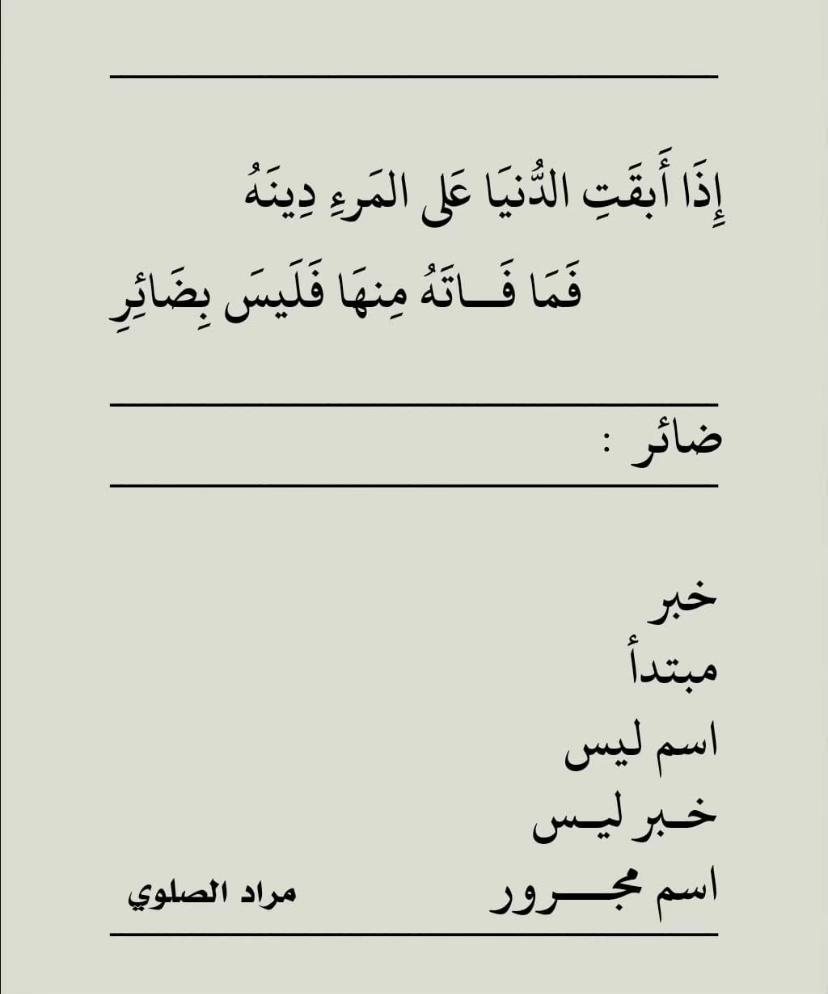 إِذَا أَبقَتِ الدُّنيَا عَلى المَرءِ دِينَهُ
فَمَا فَـــاتَهُ مِنهَا فَلَيسَ بِضَائِرِ
ضائر :
خبر
مبتدأ
اسم ليس
خــبر ليــس
اسم مجــــرور
مراد الصلوي